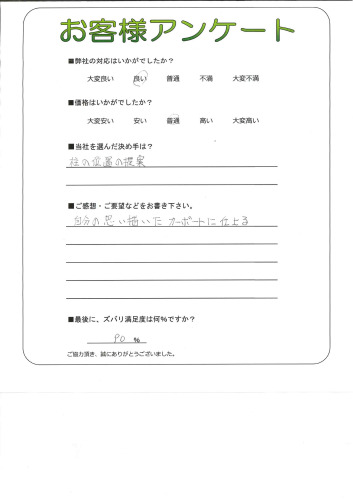 お客様アンケート
■弊社の対応はいかがでしたか？
大変良い 良い 普通 不満 大変不満
■価格はいかがでしたか？
大変安い 安い 普通 高い 大変高い
■当社を選んだ決め手は？
柱の位置の提案
■ご感想・ご要望などをお書き下さい。
自分の思い描いたカーポートに仕上る
■最後に、ズバリ満足度は何％ですか？
90 %
ご協力頂き、誠にありがとうございました。